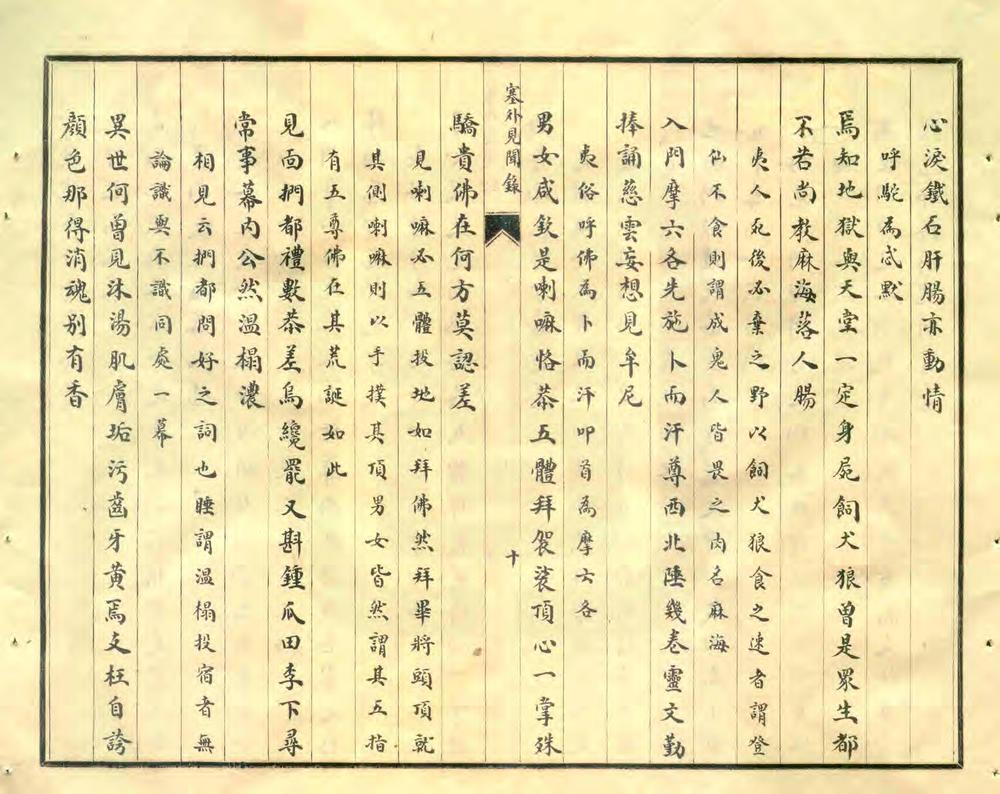 心淚鐵石肝腸亦動情
呼駝為忒默
焉知地獄與天堂一定身屍飼犬狼曾是眾生都
不若尚教麻海落人腸
夷人死後必棄之野以飼犬狼食之速者謂登
仙不食則謂成鬼人皆畏之肉名麻海
入門摩六各先施卜而汗尊西北陲幾卷靈文勤
捧誦慈雲妄想見牟尼
夷俗呼佛為卜而汗叩首為摩六各
男女咸欽是喇嘛恪恭五體拜袈裟頂心一掌殊
塞外見聞錄
十
驕貴佛在何方莫認差
見喇嘛必五體投地如拜佛然拜畢將頭頂就
其側喇嘛則以手撲其頂男女皆然謂其五指
有五尊佛在其荒誕如此
見面捫都禮數恭差烏纔罷又斟鍾瓜田李下尋
常事幕內公然溫榻濃
相見云捫都問好之詞也睡謂溫榻投宿者無
論識與不識同處一幕
異世何曾見沐湯肌膚垢污齒牙黃焉支枉自誇
顏色那得消魂別有香